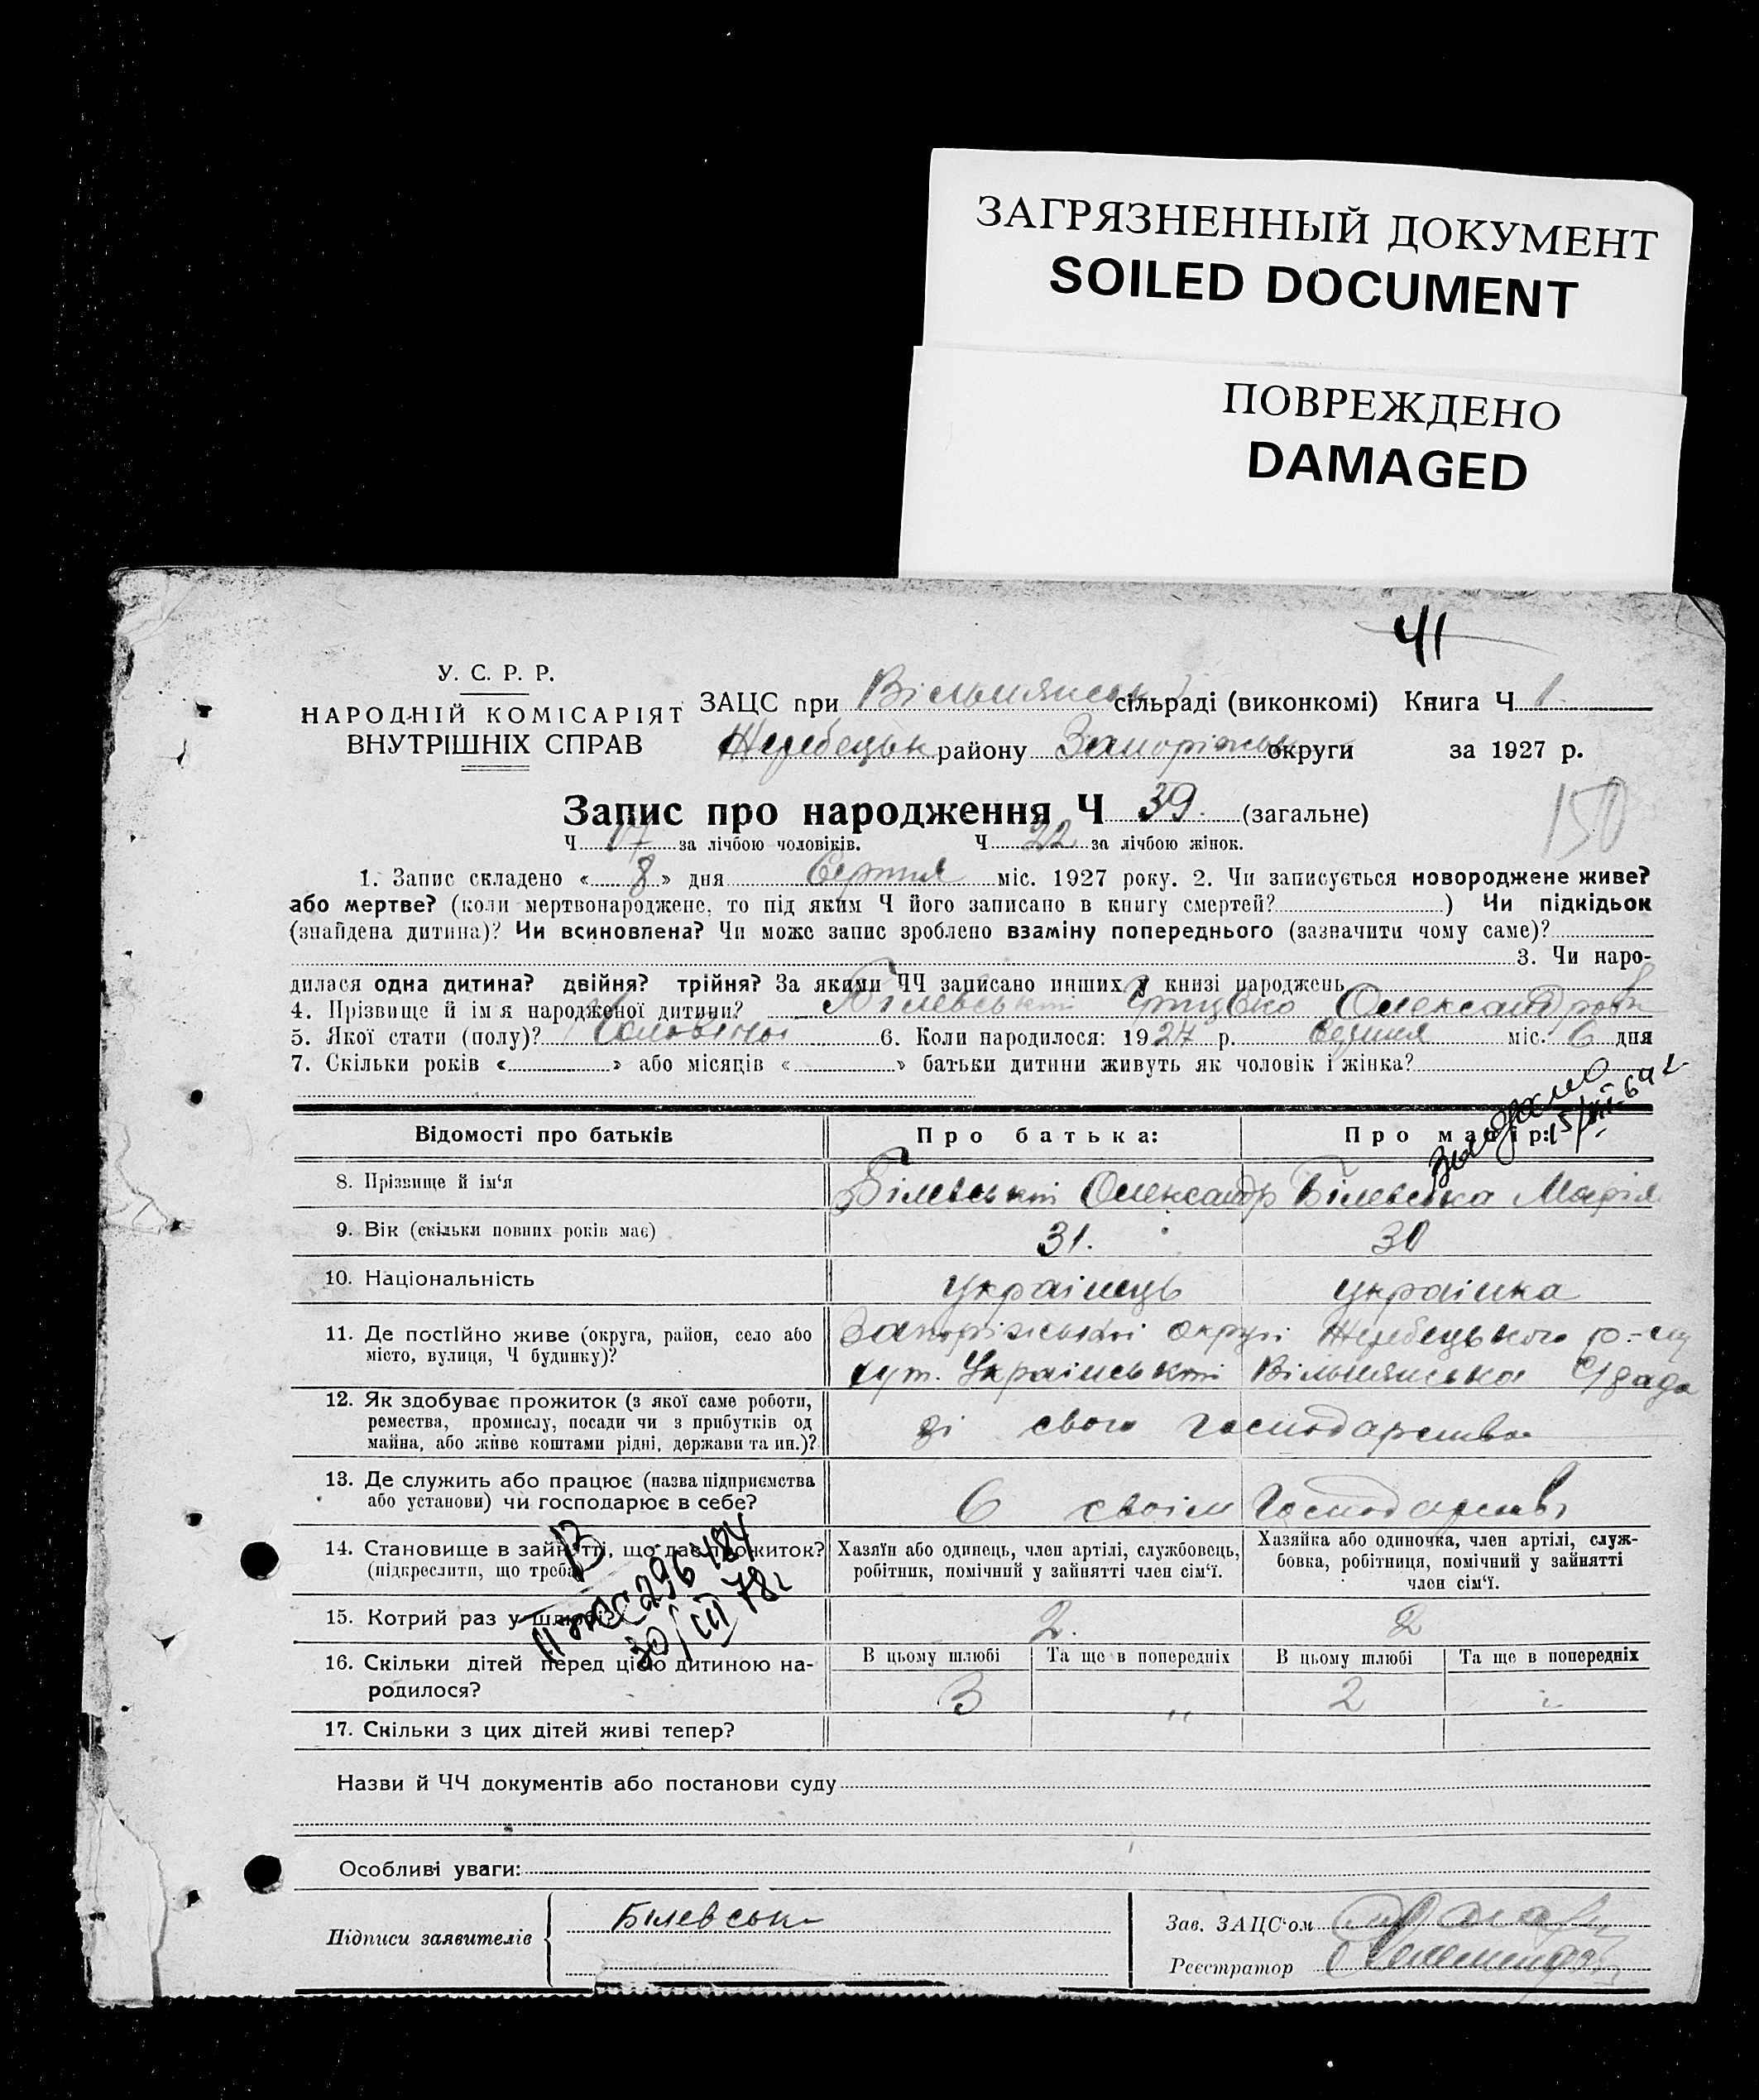 ЗАГРЯЗНЕННЫЙ ДОКУМЕНТ
SOILED DOCUMENT
ПОВРЕЖДЕНО
DAMAGED
41
У. С. Р. Р.
НАРОДНІЙ КОМІСАРІЯТ
ВНУТРІШНІХ СПРАВ
ЗАЦС при Вільнянськ сільраді (виконкомі) Книга Ч 1.
Жеребецьк району Запоріжськ округи за 1927 р.
Запис про народження Ч 39. (загальне)
Ч 17 за лічбою чоловіків. Ч 22 за лічбою жінок.
150
1. Запис складено « 8 » дня Серпня міс. 1927 року. 2. Чи записується новороджене живе?
або мертве? (коли мертвонароджене, то під яким Ч його записано в книгу смертей? ) Чи підкідьок
(знайдена дитина)? Чи всиновлена? Чи може запис зроблено взаміну попереднього (зазначити чому саме)?
3. Чи наро-
дилася одна дитина? двійня? трійня? За якими ЧЧ записано инших у книзі народжень
4. Прізвище й ім'я народженої дитини? Білевський Олександров
5. Якої стати (полу)? Чоловічої 6. Коли народилося: 1927 р. Серпня міс. 6 дня
7. Скільки років « » або місяців « » батьки дитини живуть як чоловік і жінка?
15/VII-64 г
Відомості про батьків Про батька: Про матір:
8. Прізвище й ім'я Білевський Олександр Білевська Марія
9. Вік (скільки повних років має) 31. 30
10. Національність українець українка
11. Де постійно живе (округа, район, село або місто, вулиця, Ч будинку)? Запоріжської округи Жеребецького р-ну
хут. Український Вільнянська С/рада
12. Як здобуває прожиток (з якої саме роботи, ремества, промислу, посади чи з прибутків од майна, або живе коштами рідні, держави та ин.)? зі свого господарства
13. Де служить або працює (назва підприємства або установи) чи господарює в себе? В своїм Господарстві
14. Становище в зайнятті, що дає прожиток? (підкреслити, що треба) Хазяїн або одинець, член артілі, службовець, робітник, помічний у зайнятті член сім'ї. Хазяйка або одиночка, член артілі, служ-бовка, робітниця, помічний у зайнятті член сім'ї.
15. Котрий раз у шлюбі? 2. 2
296484
30/III 78 г
16. Скільки дітей перед цією дитиною на-родилося? В цьому шлюбі Та ще в попередніх В цьому шлюбі Та ще в попередніх
3 " 2
17. Скільки з цих дітей живі тепер?
Назви й ЧЧ документів або постанови суду
Особливі уваги:
Підписи заявителів Білевськ
Зав. ЗАЦС'ом
Реєстратор